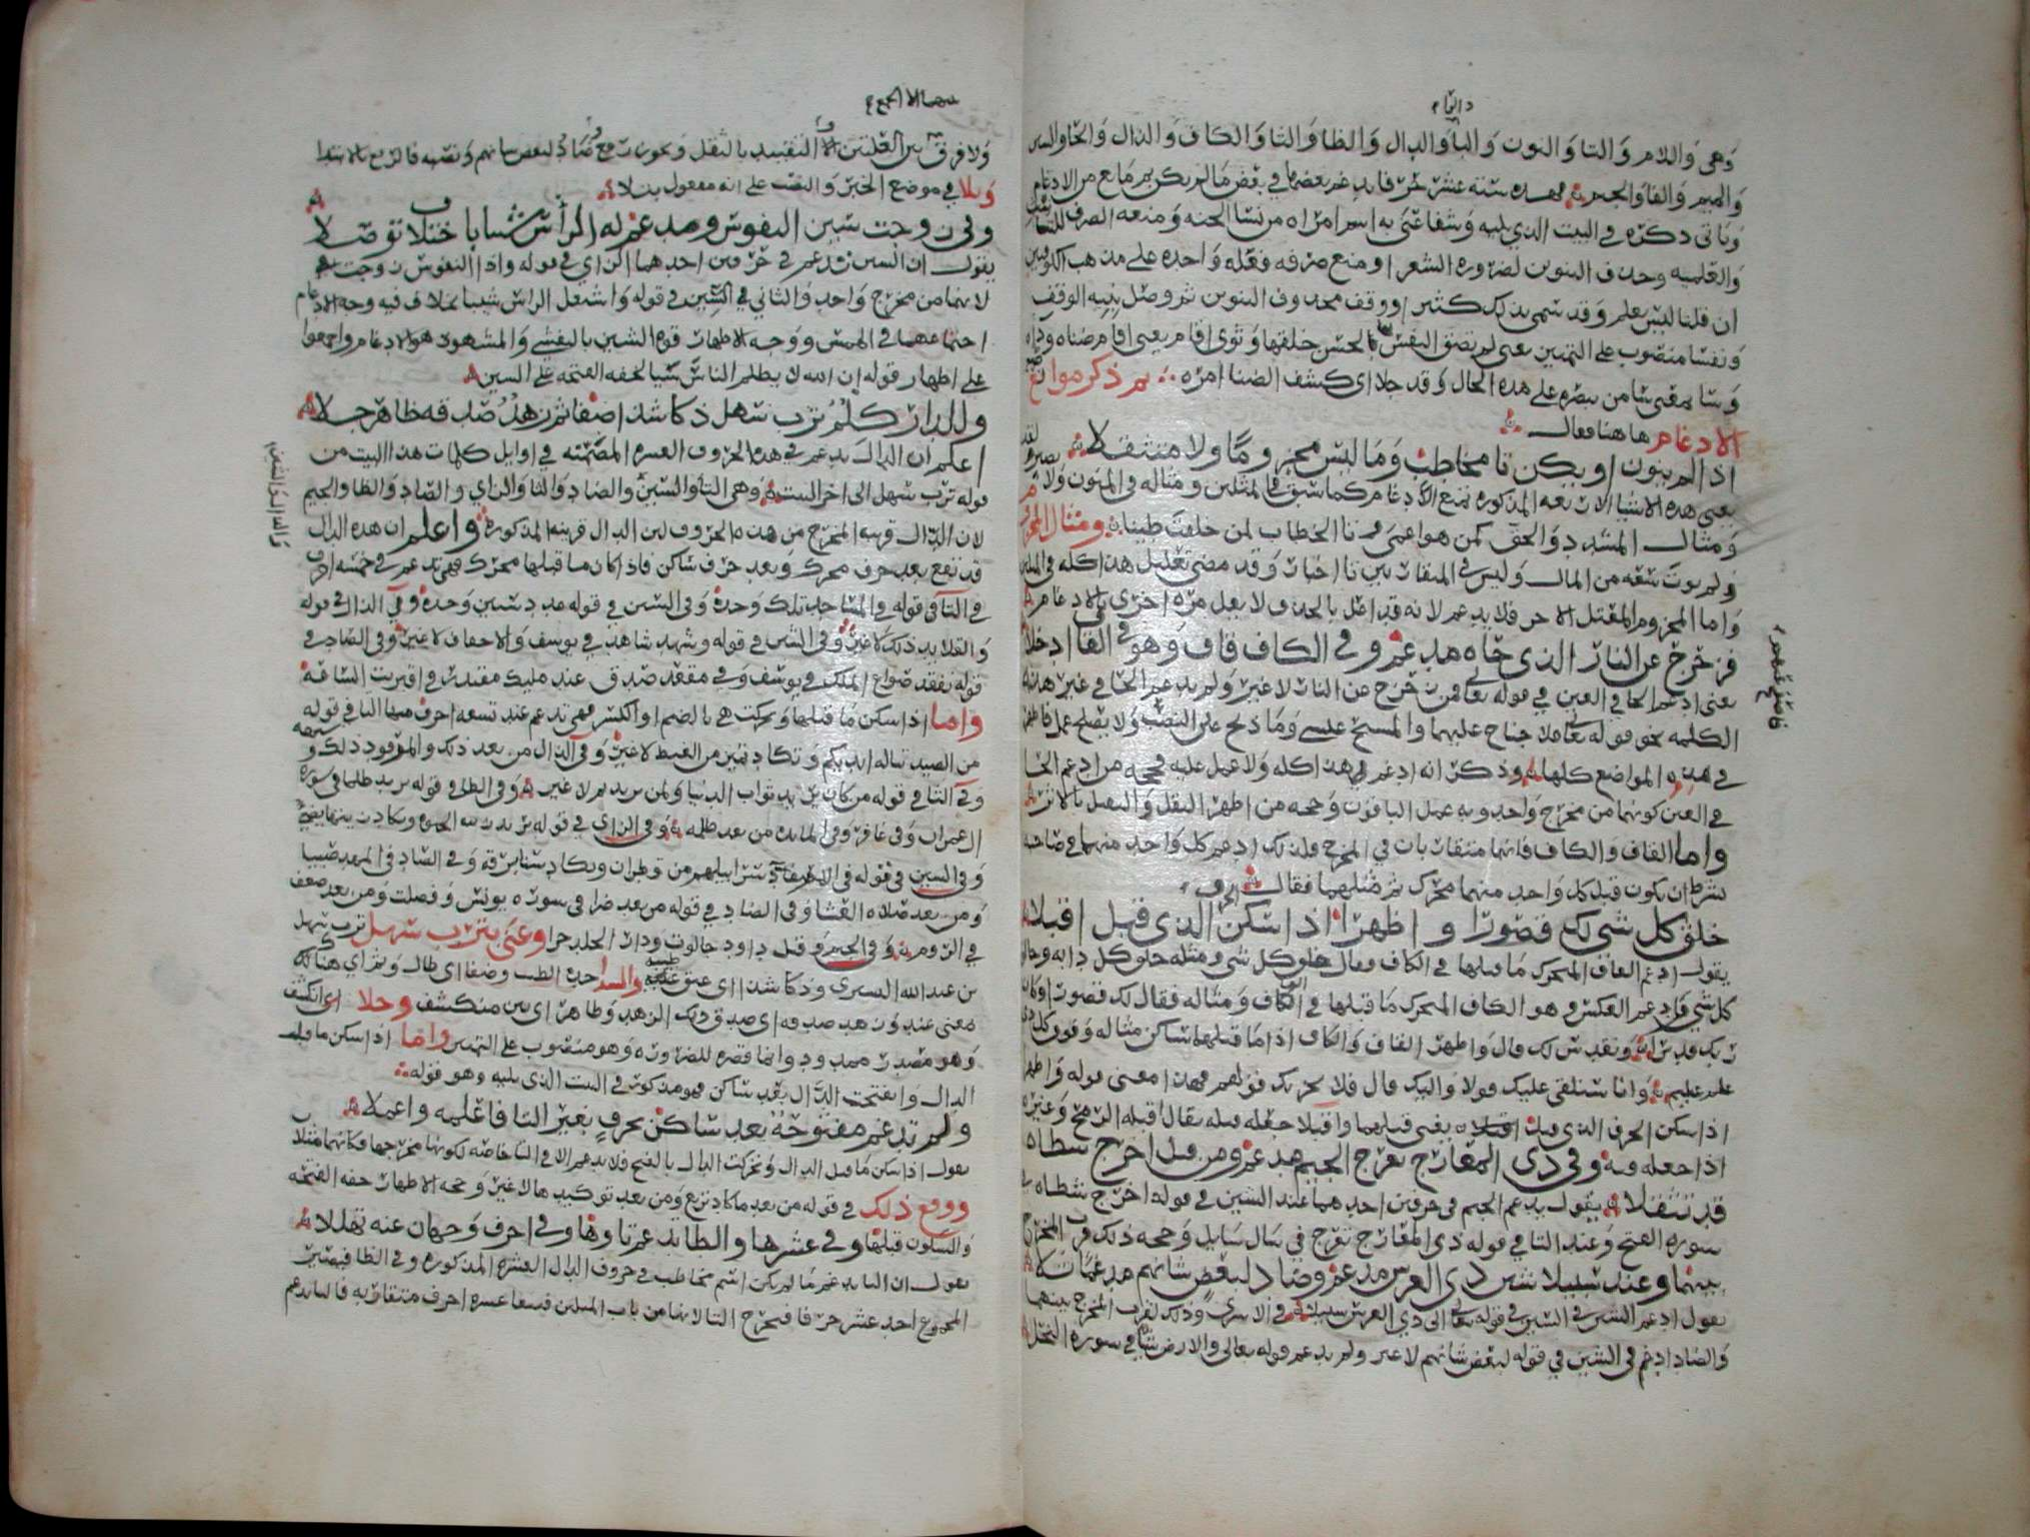 وهي واللام والتا والنون والبا والدال والظا والثا والكاف والذال والحا والسين
والميم والقاف والجيم فهذه ستة عشر حرفا يدغم بعضها في بعض ما لم يكن ثم مانع من الادغام
وياتي ذكره في البيت الذي يليه وشفا عنى به اسم امراه من نسا الجنه ومنعه الصرف للتانيث
والعلميه وحذف التنوين لضروره الشعر او منع صرفه فعله واحده على مذهب الكوفيين
ان قلنا ليس بعلم وقد سمي بذلك كثير ووقف محذوف التنوين ثم وصل بنيه الوقف
ونفسا منصوب على التمييز يعني لم تضق النفس منها لحسن خلقها وثوى اقام يعني اقام ضناه
وسا معنى سا من بصره على هذه الحال وقد جلا اي كشف الضنا امره ثم ذكر موانع
الادغام هاهنا فقال
اذا لم ينون او يكن تا مخاطب وما ليس مجزوما ولا متثقلا
يعني هذه الاشيا الاربعه المذكوره تمنع الادغام كما سبق في المثلين ومثاله في المنون ولا نصير لقد
ومثال المشدد والحق كمن هو اعمى وتا الخطاب لمن خلقت طينا ومثال المجزوم
ولم يوت سعه من المال وليس في المتقاربين تا اخبار وقد مضى تعليل هذا كله في المثلين
واما المجزوم المعتل الاخر فلا يدغم لانه قد اعل بالحذف لا يعل مره اخرى بالادغام
فزحزح عن النار الذي حاه مدغم وفي الكاف قاف وهو في القاف ادخلا
يعني ادغم الحا في العين في قوله تعالى فمن زحزح عن النار لا غير ولم يدغم الحا في غير هذه
الكلمه نحو قوله تعالى فلا جناح عليهما والمسيح عيسى وما ذبح على النصب ولا يصلح عمل المفسدين
في هذه المواضع كلها وذكر انه ادغم في هذا كله ولا عمل عليه وحجه من ادغم الحا
في العين كونهما من مخرج واحد وبه عمل الباقون وحجه من اظهر النقل والعمل بالاثر
واما القاف والكاف فانهما متقاربان في المخرج فلذلك ادغم كل واحد منهما في صاحبه
بشرط ان يكون قبل كل واحد منهما محرك ثم مثلهما فقال
خلق كل شي لك قصورا واظهرا اذا سكن الحرف الذي قبل اقبلا
يقول ادغم القاف المتحرك ما قبلها في الكاف وقال خلق كل شي ومثله خلق كل دابه وخالق
كل شي وادغم العكس وهو الكاف المتحرك ما قبلها في القاف ومثاله فقال لك قصورا وكان
ربك قديرا ونقدس لك قال واظهر القاف والكاف اذا ما قبلهما ساكن مثاله وفوق كل ذي
علم عليم وانا سنلقي عليك قولا واليك قال فلا يحزنك قولهم فهذا معنى قوله واظهرا
اذا سكن الحرف الذي قبل اقبلا يعني قبلهما واقبلا جعله قبله يقال اقبله الرمح وغيره
اذا جعله قبله وفي ذي المعارج تعرج الجيم مدغم ومن قبل اخرج شطاه
قد تثقلا يقول يدغم الجيم في حرفين احدهما عند الشين في قوله اخرج شطاه في
سوره الفتح وعند التا في قوله ذي المعارج تعرج في سال سايل وحجه ذلك قرب المخرج
بينهما وعند سبيلا شين ذي العرش مدغم وضاد لبعض شانهم مدغما تلا
يقول ادغم الشين في السين في قوله تعالى الى ذي العرش سبيلا في الاسرى وذلك لقرب المخرج بينهما
والضاد ادغم في الشين في قوله لبعض شانهم لا غير ولم يدغم قوله تعالى والارض شيا في سوره النحل
فاستمع تفهم
ولا فرق بين العلتين الا التقييد بالثقل ويجوز رفع ضاد لبعض شانهم ونصبه فالرفع بالابتدا
وتلا في موضع الخبر والنصب على انه مفعول بتلا
وفي زوجت سين النفوس ومدغم له الراس شيبا باختلاف توصلا
يقول ان السين تدغم في حرفين احدهما الزاي في قوله واذا النفوس زوجت
لانهما من مخرج واحد والثاني في الشين في قوله واشتعل الراس شيبا بخلاف فيه وجه الادغام
اجتماعهما في الهمس ووجه الاظهار قوه الشين بالتفشي والمشهور هو الادغام واجمعوا
على اظهار قوله ان الله لا يظلم الناس شيا لخفه الفتحه على السين
وللدال كلم ترب سهل ذكا شذا ضفا ثم زهد صدقه ظاهر جلا
اعلم ان الدال تدغم في هذه الحروف العشره المضمنه في اوايل كلمات هذا البيت من
قوله ترب سهل الى اخر البيت وهي التا والسين والضاد والثا والزاي والصاد والظا والجيم
لان الدال قريبه المخرج من هذه الحروف المذكوره واعلم ان هذه الدال
قد تقع بعد حرف محرك وبعد حرف ساكن فاذا كان ما قبلها محرك فهي تدغم في خمسه احرف
في التا في قوله في المساجد تلك وحده وفي السين في قوله عدد سنين وحده وفي الذال في قوله
والقلايد ذلك لا غير وفي الشين في قوله وشهد شاهد في يوسف والاحقاف لا غير وفي الصاد في
قوله نفقد صواع الملك في يوسف وفي مقعد صدق عند مليك مقتدر في اقتربت الساعه
واما اذا سكن ما قبلها وتحركت هي بالضم او الكسر فهي تدغم عند تسعه احرف منها التا في قوله
من الصيد تناله ايديكم وتكاد تميز من الغيظ لا غير وفي الذال من بعد ذلك والمرفود ذلك
وفي الثا في قوله من كان يريد ثواب الدنيا ولمن نريد ثم لا غير وفي الظا في قوله يريد ظلما في سوره
ال عمران وفي غافر وفي المايده من بعد ظلمه وفي الزاي في قوله تريد زينه الحيوه ويكاد زيتها يضي
وفي السين في قوله في الاصفاد سرابيلهم من قطران ويكاد سنا برقه وفي الصاد في المهد صبيا
ومن بعد صلاه العشا وفي الضاد في قوله من بعد ضرا في سوره يونس وفصلت ومن بعد ضعف
في الروم وفي الجيم وقتل داود جالوت ودار الخلد جزا وعنى بترب سهل ترب سهل
بن عبد الله التستري وذكا شذا اي عبق طيبه والشذا حده الطيب وضفا اي طال وثم اي هناك
معنى عنده زهد صدقه اي صدق ذلك الزهد وظاهر اي بين منكشف وجلا اي انكشف
وهو مصدر ممدود وانما قصره للضروره وهو منصوب على التمييز واما اذا سكن ما قبل
الدال وانفتحت الدال بعد ساكن فهو مذكور في البيت الذي يليه وهو قوله
ولم تدغم مفتوحه بعد ساكن بحرف بغير التا فاعلمه واعملا
يقول اذا سكن ما قبل الدال وتحركت الدال بالفتح فلا تدغم الا في التا خاصه لكونها مخرجها فكانهما مثلان
ووقع ذلك في قوله من بعد ما كاد تزيغ ومن بعد توكيدها لا غير وحجه الاظهار خفه الفتحه
والسكون قبلها وفي عشرها والطا تدغم تاوها وفي احرف وجهان عنه تهللا
يقول ان التا تدغم ما لم يكن اسم مخاطب في حروف الدال العشره المذكوره وفي الطا فيصير
المجموع احد عشر حرفا فيخرج التا لانها من باب المثلين فتبقى عشره احرف متقاربه فالتا تدغم